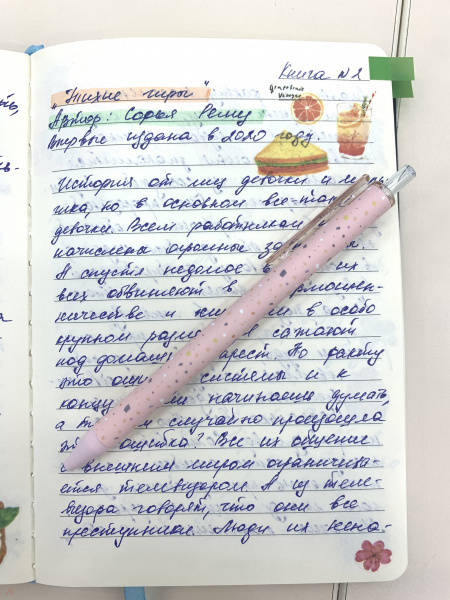 Книга №2
"Тихие игры"
Автор: Софья Ремиз
Впервые издана в 2020 году.
История от лиц девочки и маль-
чика, но в основном все-так
девочки. Всем работникам
начислены огромные за
А спустя недолгое в их
всех обвиняют в мошен-
ничестве и в особо
крупном разм сажают
под домаш арест. По факту
это ош системы и к
концу начинаешь думать,
а т случайно произошла
ошибка? Все их общение
с внешним миром ограничива-
ется телевизором. А из теле-
визора говорят, что они все
преступники. Люди их нена-